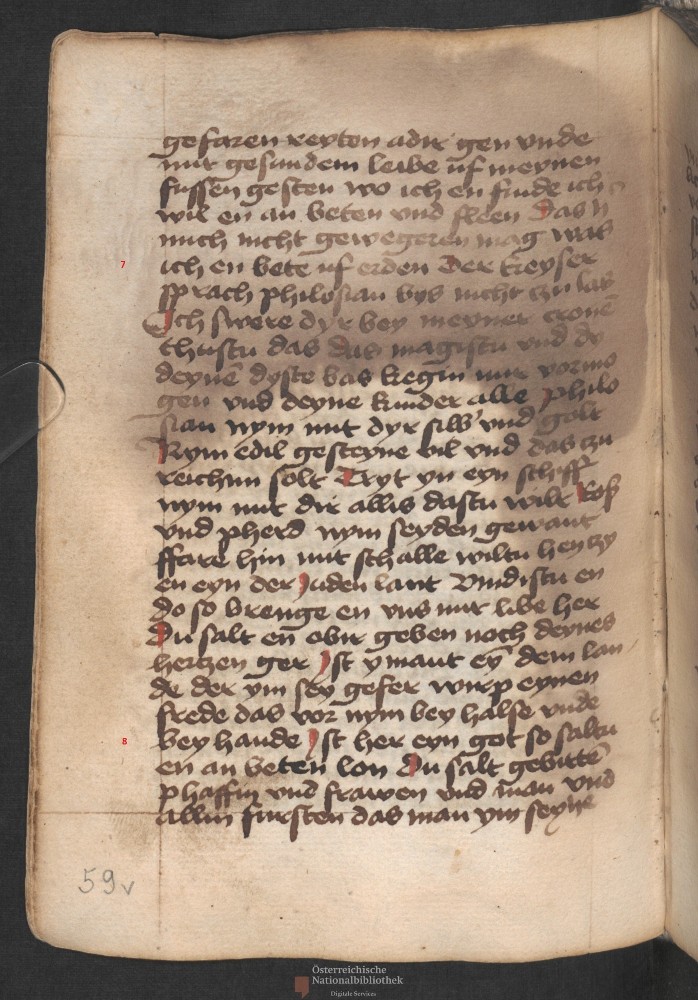 gefaren reyten adir gen vnde
mit gesundem leibe uf meynen
fussen gesten wo ich en finde ich
wil en an beten vnd fleen Das
mich nicht gewegeren mag was
7
ich en bete uf erden Der keyser
sprach philosian bys nicht czu las
Ich swere dyr bey meyner cronē
thustu das das magistu vnd dy
deynē dyste bas kegin mir vormo
gen vnd deyne kinder alle philo
sian nym mit dyr silb' vnd golt
Nym edil gesteyne vil vnd das czu
reichim solt Tryt yn eyn schiff
nym mit dir allis dastu wilt Ros
vnd pherd nym seyden gewant
ffare hin mit schalle wiltu hen czy
en eyn der Juden lant Vindistu en
do so brenge en vns mit libe her
Du salt en obir geben noch deynes
hertzen ger Jst ymant eȳ dem lan
de der ym sey gefer wirp eynen
frede das vor nym bey halse vnde
8
bey hande Jst her eyn got so saltu
en an beten lon Du salt gebittē
phaffin vnd frawen vnd man vnd
allin fursten das man ym seyne
59v
Österreichische
Nationalbibliothek
Digitale Services